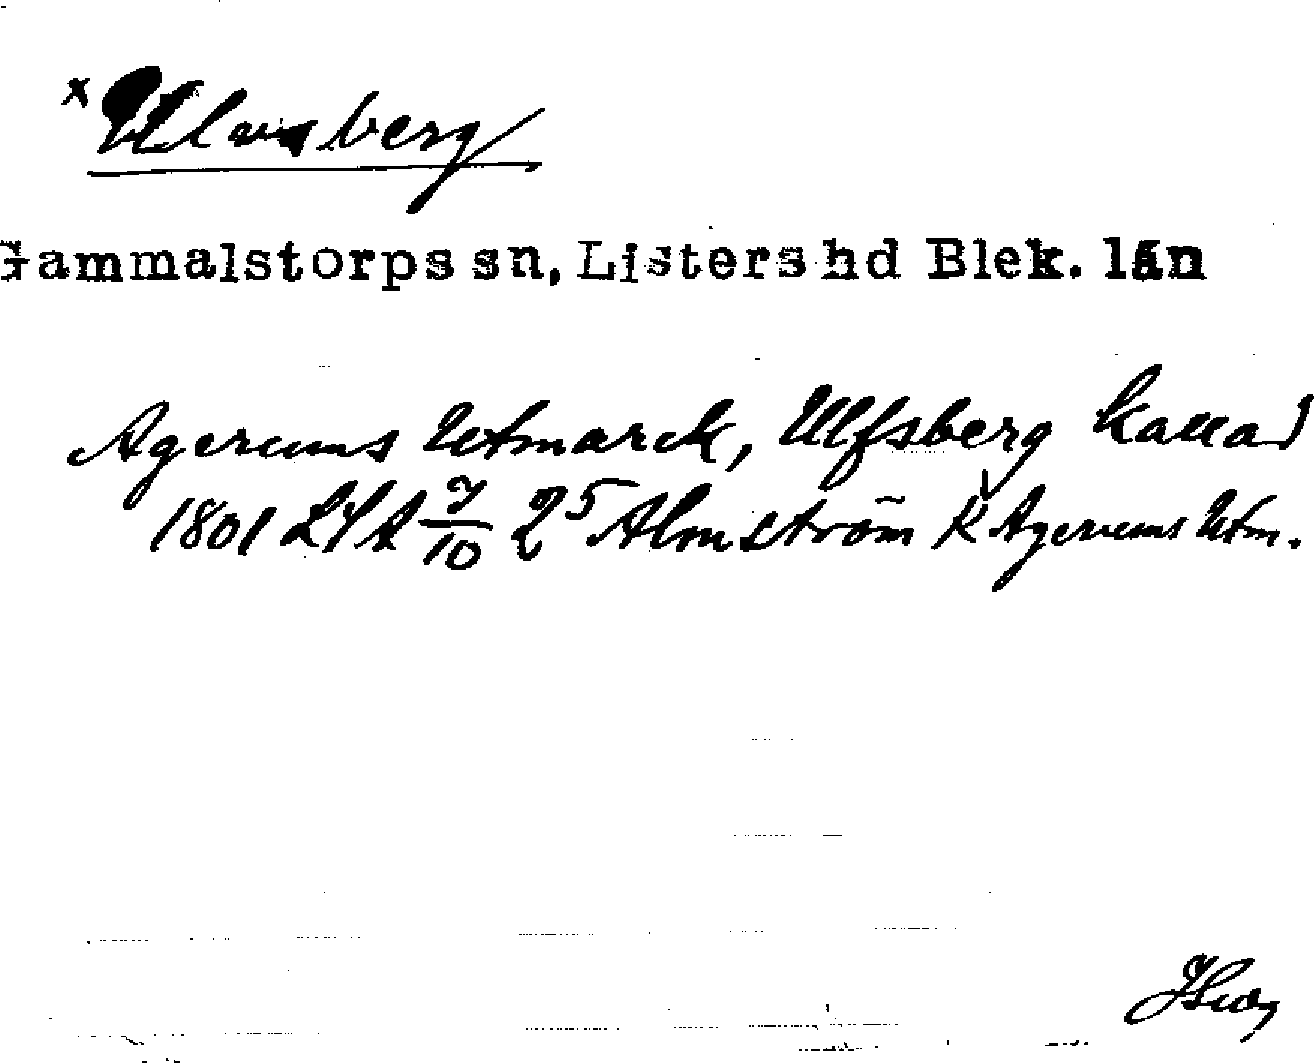 x Ulvsberg
Gammalstorps sn, Listers hd Blek. län
Agerums Utmarck, Ulfsberg kallad
1801 LSA 7/10 25 Almström K Agerums Utm.